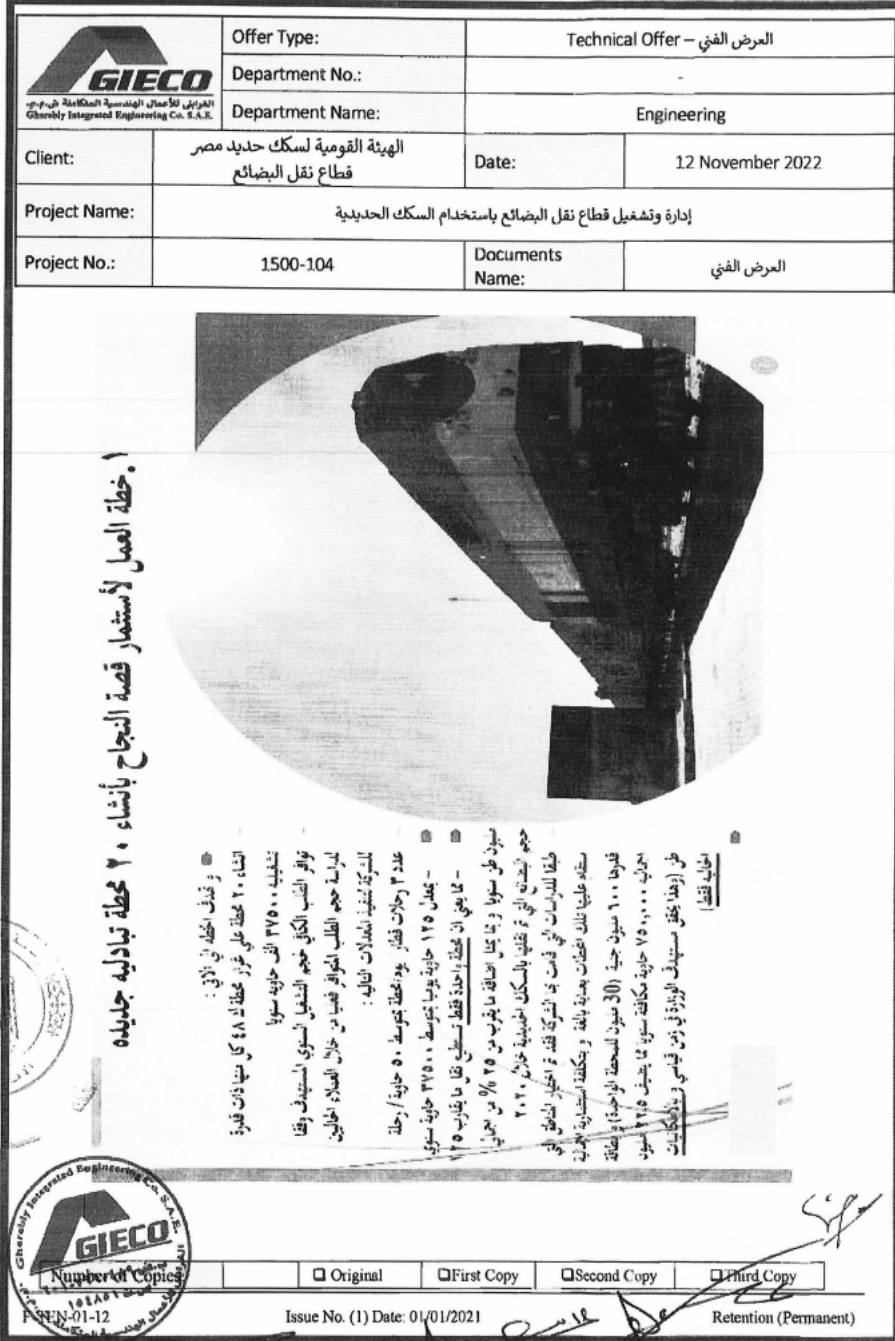 GIECO
الغرابلي للأعمال الهندسية المتكاملة ش.م.م.
Gharably Integrated Engineering Co. S.A.E.
Offer Type:
Technical Offer – العرض الفني
Department No.:
-
Department Name:
Engineering
Client:
الهيئة القومية لسكك حديد مصر
قطاع نقل البضائع
Date:
12 November 2022
Project Name:
إدارة وتشغيل قطاع نقل البضائع باستخدام السكك الحديدية
Project No.:
1500-104
Documents
Name:
العرض الفني
١. خطة العمل لأستثمار قصة النجاح بأنشاء ٢٠ محطة تبادليه جديده
و تهدف الخطة الى الاتي :
انشاء ٢٠ محطة على غرار محطة ك ٤٨ كل منها ذات قدرة
تشغيليه ٣٧٥٠٠ الف حاويه سنويا
توافر الطلب الكافي حجم التشغيل السنوي المستهدف وفقا
لدراسة حجم الطلب المتوافر فعليا من خلال العملاء الحاليين
للشركة لتنفيذ المعدلات التالية :
عدد ٣ رحلات قطار يوم/محطة بمتوسط ٥٠ حاوية / رحلة
– بمعدل ١٢٥ حاوية يوميا بمتوسط ٣٧٥٠٠ حاوية سنوي
– مما يعني ان محطة واحدة فقط تستطيع نقل ما يقارب ٢٥
مليون طن سنويا و بما يمثل اضافة ما يقرب من ٢٥ % من اجمالي
حجم البضائع التي تم نقلها بالسكك الحديدية خلال ٢٠٢٠
طبقا للدراسات التي قامت بها الشركة فقد تم اختيار المناطق التي
ستقام عليها تلك المحطات بعناية بالغة و بتكلفة استثمارية اجمالية
قدرها ٦٠٠ مليون جنية (30 مليون للمحطة الواحدة) و بطاقة
اجمالية ٧٥٠,٠٠٠ حاوية مكافئة سنويا بما يضيف ٢٢,٥ مليون
طن (وهذا يحقق مستهدف الوزارة في زمن قياسي و بالامكانيات
الحالية فقط)
Gharably Integrated Engineering Co. S.A.E.
GIECO
Number of Copies
Original
First Copy
Second Copy
Third Copy
F-TEN-01-12
Issue No. (1) Date: 01/01/2021
Retention (Permanent)